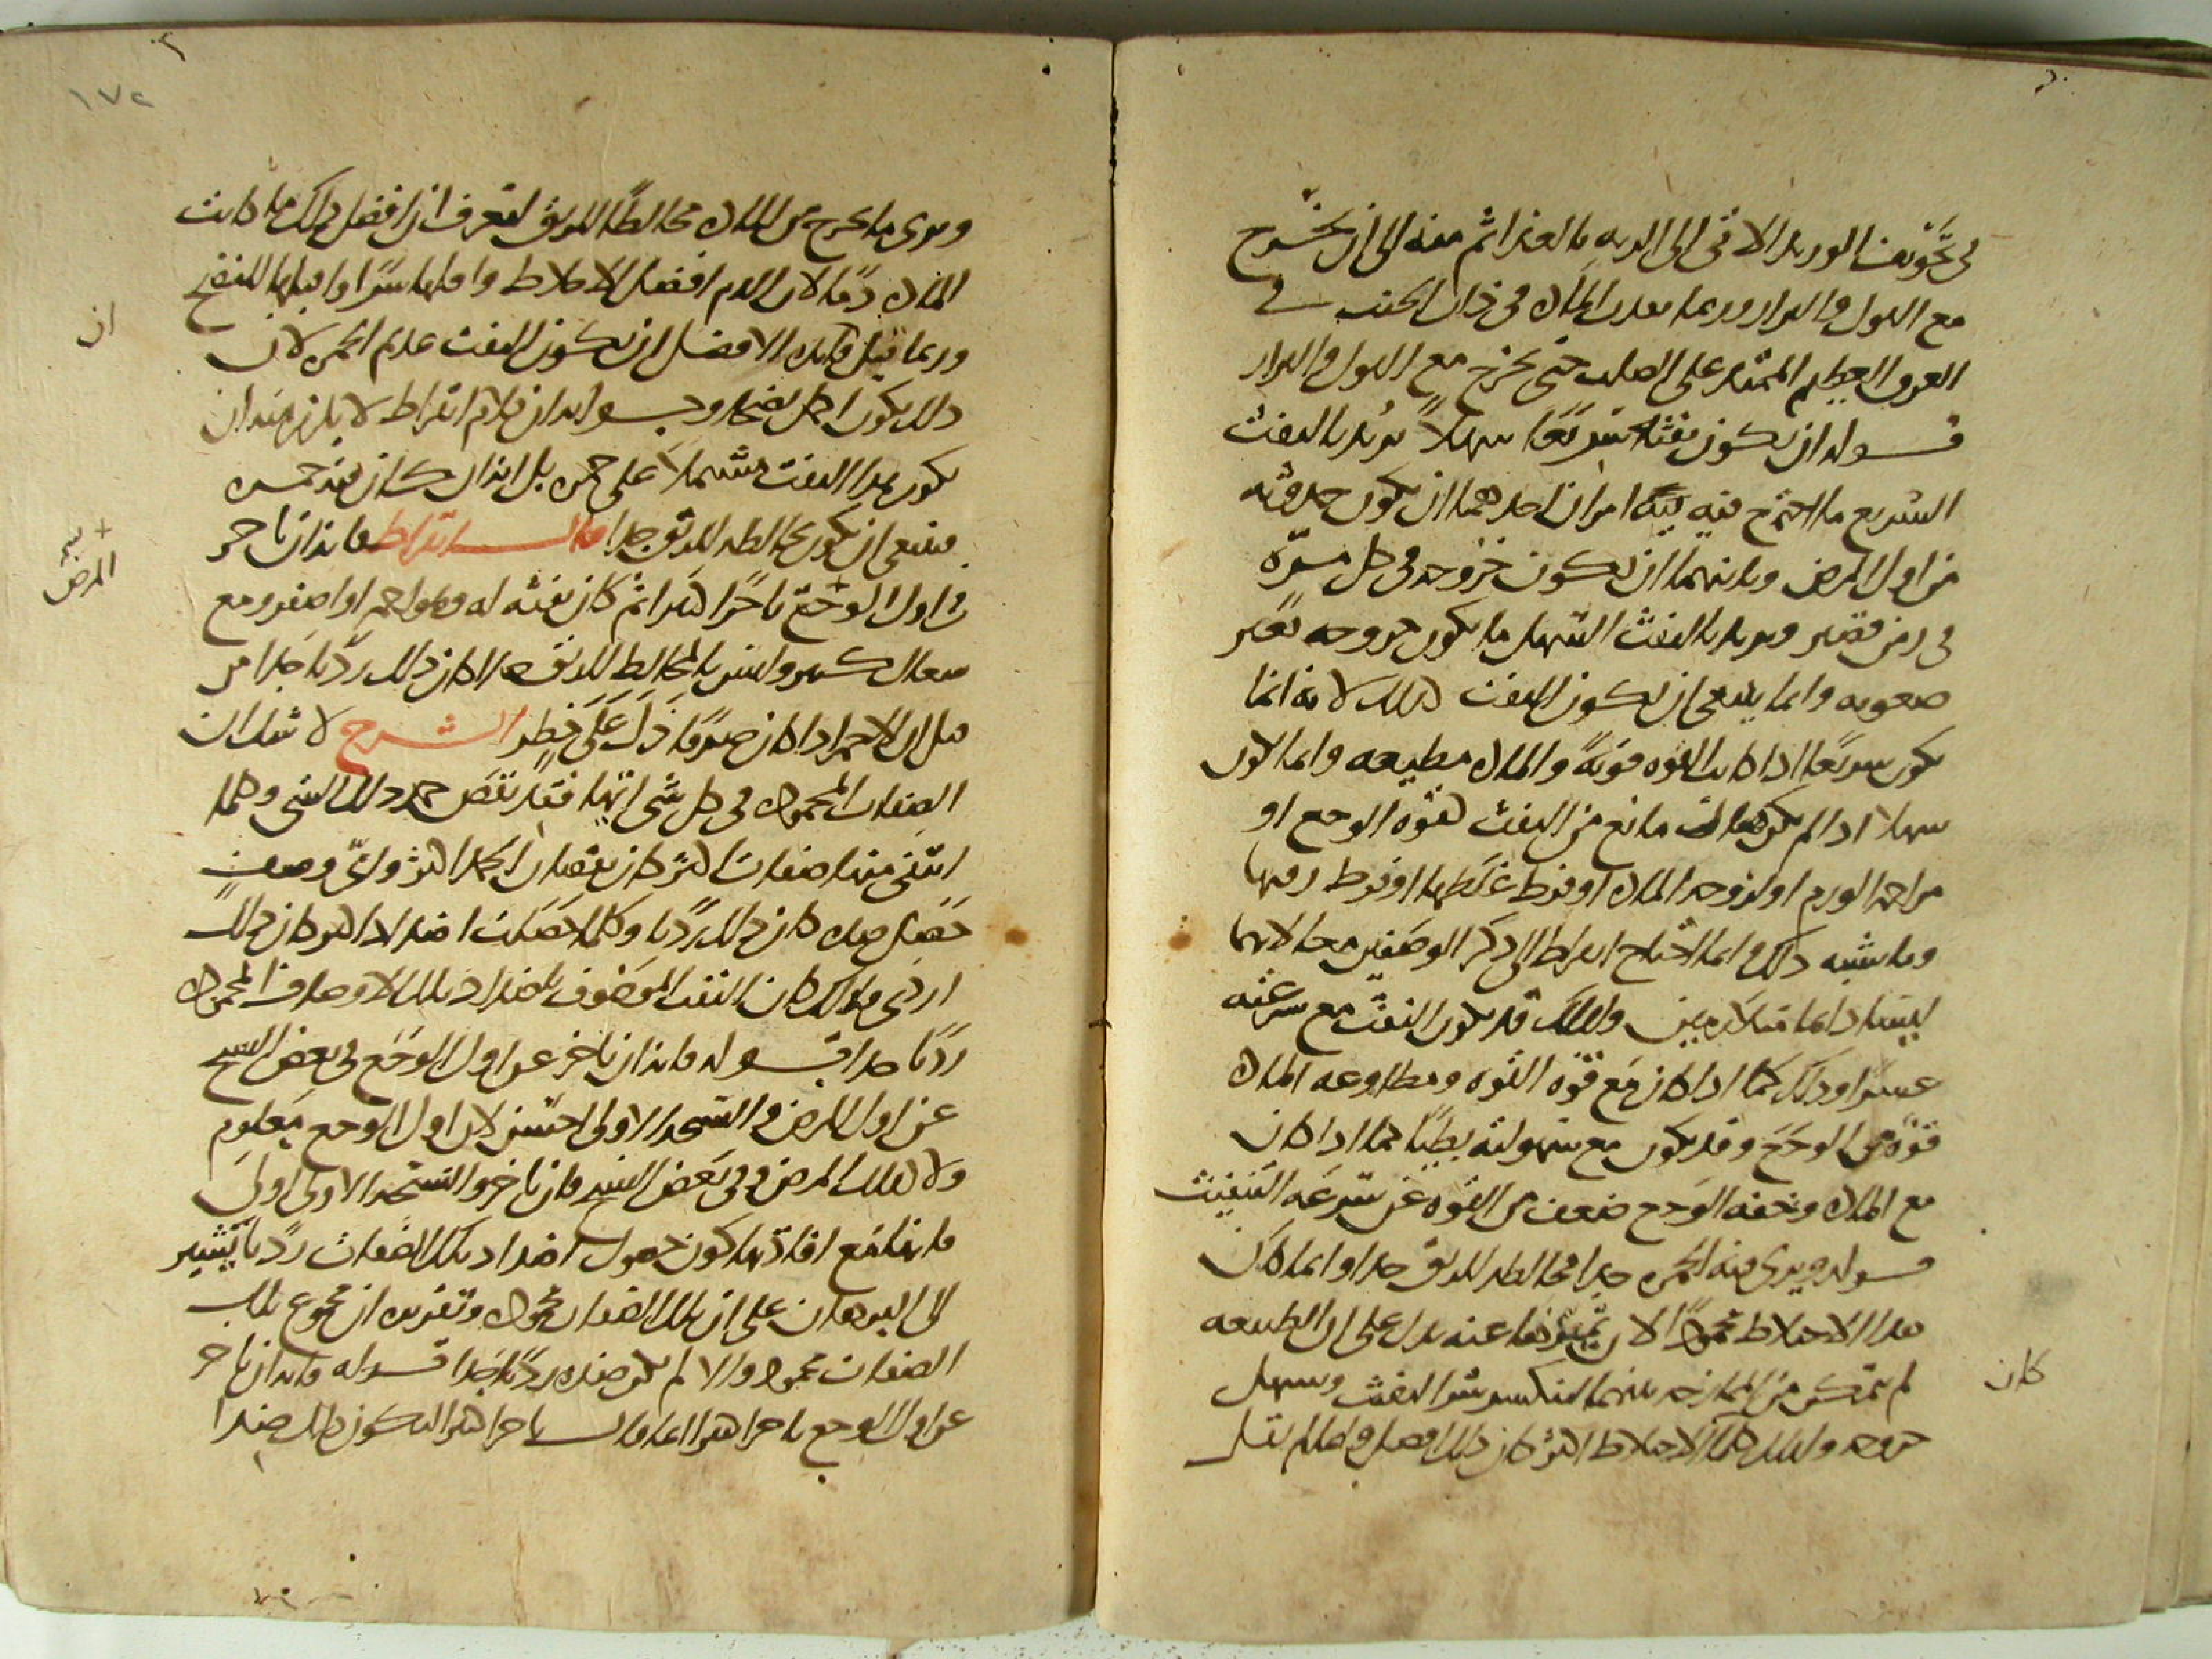 في تجويف الوريد الاتى الى الريه بالغذا ثم منه الى ان يخرج
مع البول والبراز وربما نفدت المادة في ذات الجنب في
العرق العظيم الممتد على الصلب حتى يخرج مع البول والبراز
قوله ان يكون نفثه سريعًا سهلًا يريد بالنفث
السريع ما اجتمع فيه امران احدهما ان يكون حدوثه
من اول المرض وثانيهما ان يكون خروجه في كل مرة
في زمن قصير ويريد بالنفث السهل ما يكون خروجه بغير
صعوبه وانما ينبغي ان يكون النفث كذلك لانه انما
يكون سريعًا اذا كانت القوه قويةً والمادة مطيعه وانما يكون
سهلا اذا لم يكن هناك مانع من النفث كقوه الوجع او
مزاحمه الورم او لزوجه المادة او فرط غلظها او فرط رقتها
وما يشبه ذلك وانما احتاج ابقراط الى ذكر الوصفين معا لانهما
ليسا دايما متلازمين ولذلك قد يكون النفث مع سرعته
عسرًا وذلك كما اذا كان مع قوة القوه ومطاوعه المادة
قوة من الوجع وقد يكون مع سهولته بطيًا كما اذا كان
مع المادة وخفه الوجع ضعف من القوه عن سرعه التنفيث
قوله ويرى فيه الحمره جدا مخالطه للريق جدا وانما كان
هذا الاختلاط محمودًا لان تميزها عنه يدل على ان الطبيعه
لم تتمكن من الممازجه بينهما لينكسر شر النفث ويسهل
خروجه ولذلك كلما الاختلاط اكثر كان ذلك افضل وانما لم يقل
كان
١٧٢
ويرى ما يخرج من المادة مخالطًا للريق ليعرف ان افضل ذلك ما كانت
المادة دمًا لان الدم افضل الاخلاط واقلها شرًا واقبلها للنضج
وربما قيل ان الافضل ان يكون النفث عديم الحمره لان
ان
ذلك يكون اكمل نضجا وجوابه ان كلام ابقراط لا يلزم منه ان
يكون هذا النفث مشتملا على حمره بل انه ان كان فيه حمره
فينبغي ان يكون مخالطه للريق جدا قال ابقراط فانه ان تاخر
في اول الوجع تاخرًا كثيرا ثم كان نفثه له وهو احمر او اصفر ومع
المرض
سعال كثير وليس بالمخالط للريق جدا كان ذلك رديا جدا من
قبل ان الاحمر اذا كان صرفًا دل على خطر الشرح لا شك ان
الصفات المحمودة في كل شي ايها فقد نقص حمد ذلك الشي وكلما
انتفى منها صفات اكثر كان نقصان الحمد اكثر واى وصف
حصل ضده كان ذلك رديا وكلما حصلت اضداد اكثر كان ذلك
اردى ولذلك كان النفث الموصوف باضداد تلك الاوصاف المحمودة
رديًا جدا قوله فانه ان تاخر عن اول الوجع في بعض النسخ
عن اول المرض والنسخه الاولى احسن لان اول الوجع معلوم
ولا كذلك المرض وفي بعض النسخ فان تاخر والنسخه الاولى اولى
فانها مع افادتها كون حصول اضداد تلك الصفات رديا تشير
الى البرهان على ان تلك الصفات محمودة وتقريره ان مجموع تلك
الصفات محمود والا لم يكن ضده رديًا جدا قوله فانه ان تاخر
عن اول الوجع تاخرا كثيرا انما قال تاخرا كثيرا ليكون ذلك ضدا